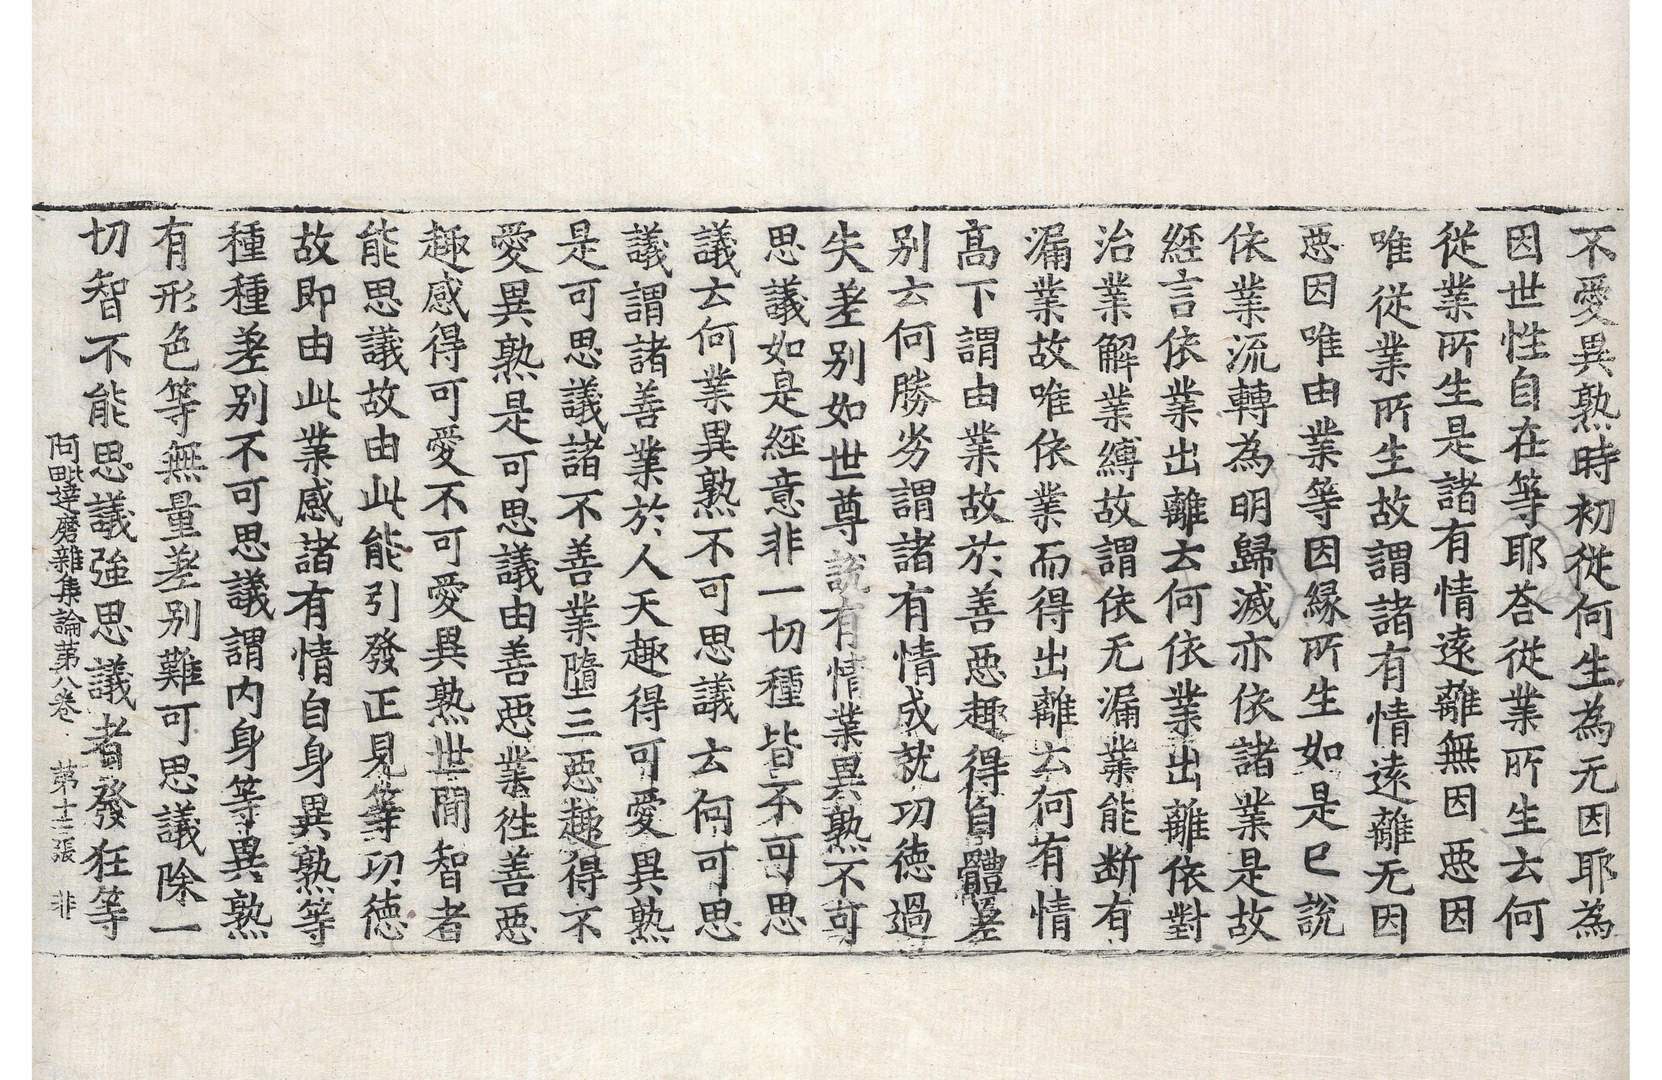 不愛異熟時初從何生為无因耶為
因世性自在等耶荅從業所生云何
從業所生是諸有情遠離無因惡因
唯從業所生故謂諸有情遠離无因
惡因唯由業等因縁所生如是已說
依業流轉為明歸滅亦依諸業是故
經言依業出離云何依業出離依對
治業解業縛故謂依无漏業能断有
漏業故唯依業而得出離云何有情
高下謂由業故於善惡趣得自體差
别云何勝劣謂諸有情成就功徳過
失差别如世尊說有情業異熟不可
思議如是經意非一切種皆不可思
議云何業異熟不可思議云何可思
議謂諸善業於人天趣得可愛異熟
是可思議諸不善業墮三惡趣得不
愛異熟是可思議由善惡業徃善惡
趣感得可愛不可愛異熟世間智者
能思議故由此能引發正見等功徳
故即由此業感諸有情自身異熟等
種種差别不可思議謂内身等異熟
有形色等無量差别難可思議除一
切智不能思議強思議者發狂等
阿毗達磨雜集論第八卷 第十二張 非